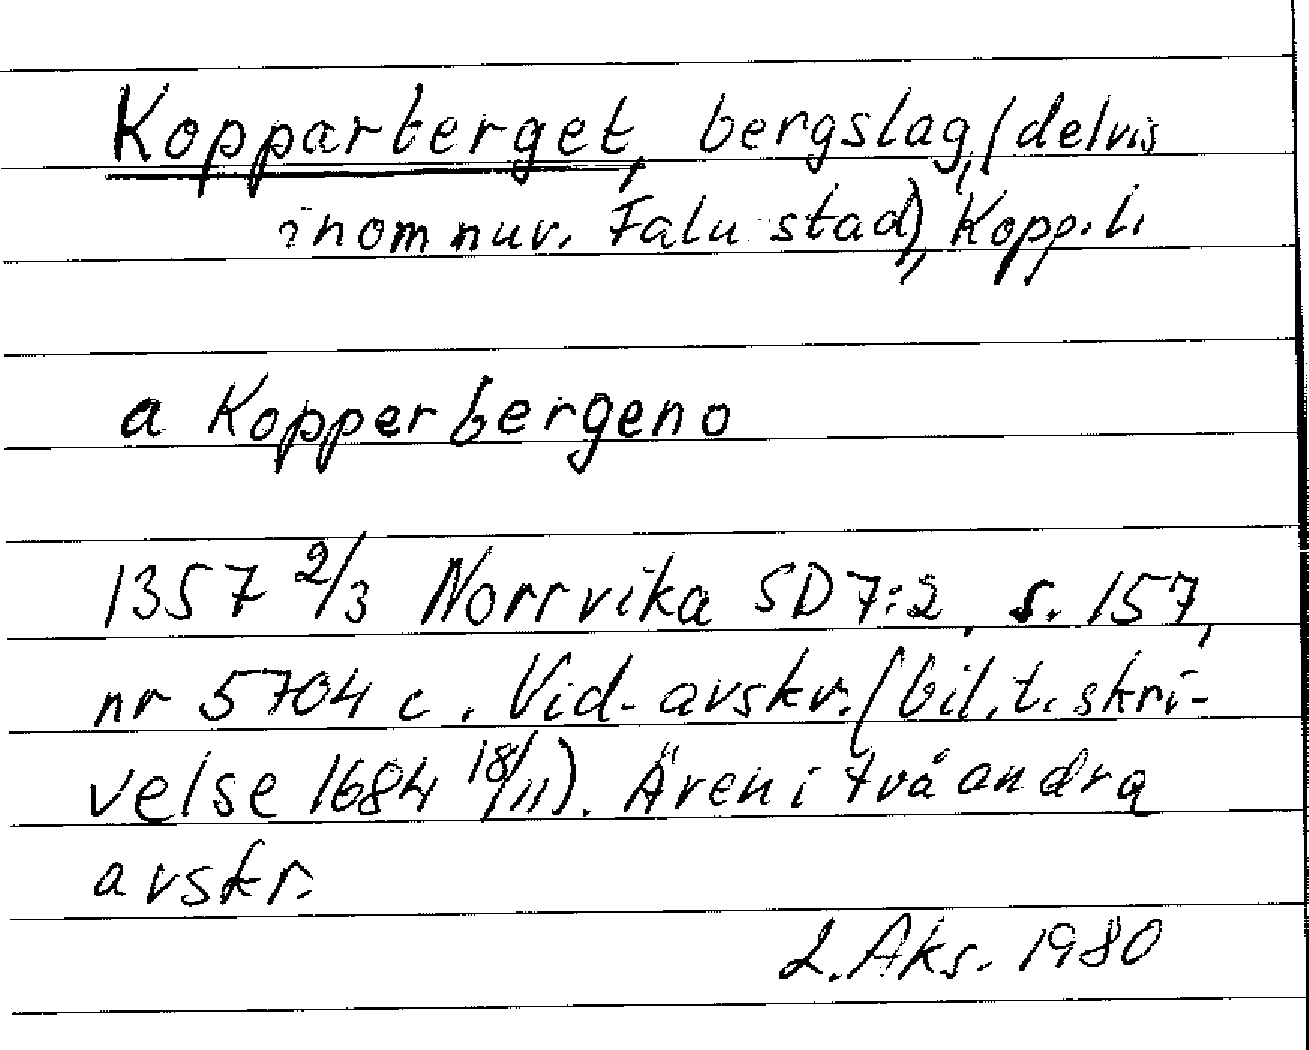 Kopparberget, bergslag, (delvis
inom nuv. Falu stad), Kopp. l.
a Kopperbergeno
1357 2/3 Norrvika SD 7:2, s. 157,
nr 5704 c. Vid. avskr. (bil. t. skri-
velse 1684 18/11). Även i två andra
avskr.
L. Aks. 1980